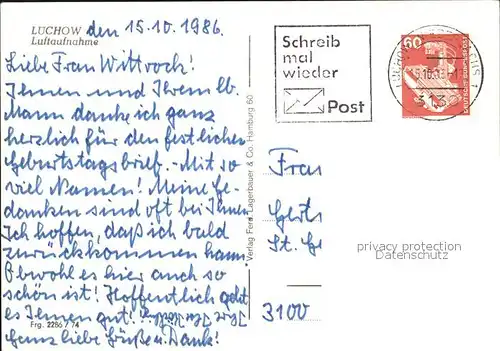 LÜCHOW
Luftaufnahme
den 15.10.1986.
Liebe Frau Wittrock!
Ihnen und Ihrem lb.
Mann danke ich ganz
herzlich für den festlichen
Geburtstagsbrief. - Mit so
viel Namen! Meine Ge-
danken sind oft bei Ihnen
Ich hoffe, daß ich bald
zurückkommen kann
Obwohl es hier auch so
schön ist! Hoffentlich geht
es Ihnen gut!
Ganz liebe Grüße u. Dank!
Frg. 2286/74
Verlag Ferd. Lagerbauer & Co. Hamburg 60
Schreib
mal
wieder
Post
60
DEUTSCHE BUNDESPOST
Frau
St. Ge
3100
privacy protection